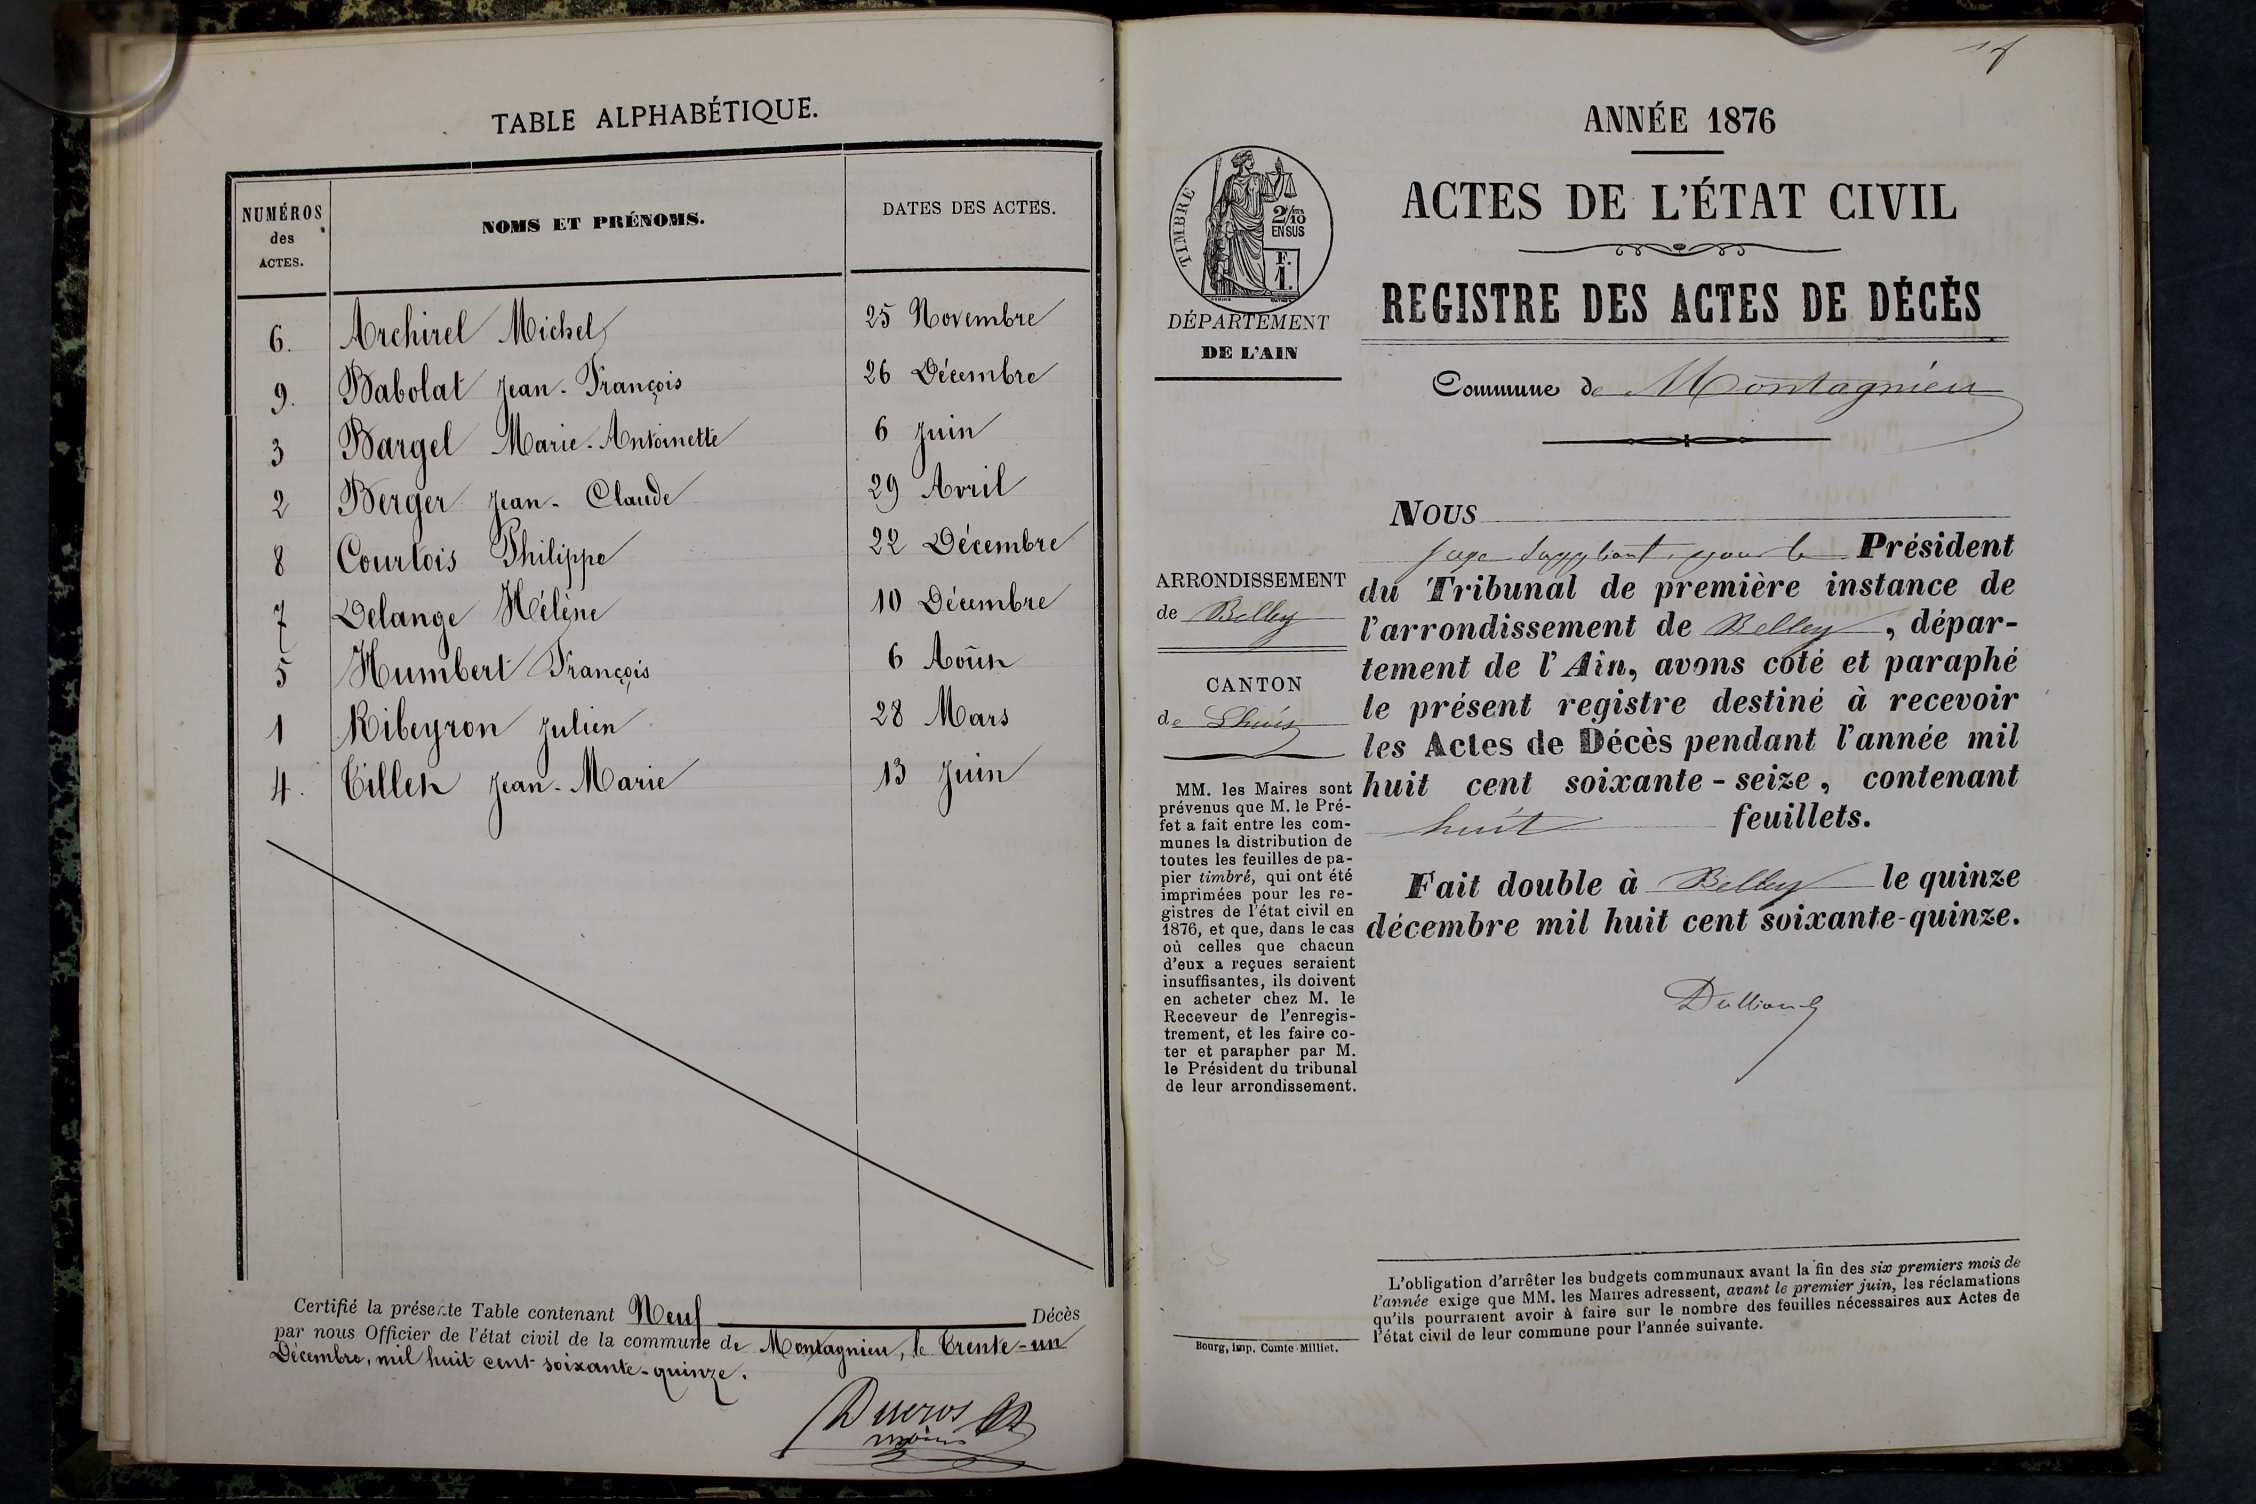 TABLE ALPHABÉTIQUE.
NUMÉROS
des
ACTES.
NOMS ET PRÉNOMS.
DATES DES ACTES.
6. Archirel Michel 25 Novembre
9. Babolat Jean-François 26 Décembre
3 Bargel Marie-Antoinette 6 Juin
2 Berger Jean-Claude 29 Avril
8 Courtois Philippe 22 Décembre
7 Delange Hélène 10 Décembre
5 Humbert François 6 Août
1 Ribeyron Julien 28 Mars
4. Tillet Jean-Marie 13 Juin
Certifié la présente Table contenant Neuf Décès
par nous Officier de l'état civil de la commune de Montagnieu, le Trente-un
Décembre, mil huit cent soixante-quinze.
Ducros
ANNÉE 1876
ACTES DE L'ÉTAT CIVIL
REGISTRE DES ACTES DE DÉCÈS
Commune de Montagnieu
TIMBRE
2/10
EN SUS
F.
1.
DÉPARTEMENT
DE L'AIN
ARRONDISSEMENT
de Belley
CANTON
de Lhuis
MM. les Maires sont
prévenus que M. le Pré-
fet a fait entre les com-
munes la distribution de
toutes les feuilles de pa-
pier timbré, qui ont été
imprimées pour les re-
gistres de l'état civil en
1876, et que, dans le cas
où celles que chacun
d'eux a reçues seraient
insuffisantes, ils doivent
en acheter chez M. le
Receveur de l'enregis-
trement, et les faire co-
ter et parapher par M.
le Président du tribunal
de leur arrondissement.
Bourg, imp. Comte-Milliet.
NOUS
Juge Suppléant, pour le Président
du Tribunal de première instance de
l'arrondissement de Belley, dépar-
tement de l'Ain, avons coté et paraphé
le présent registre destiné à recevoir
les Actes de Décès pendant l'année mil
huit cent soixante-seize, contenant
huit feuillets.
Fait double à Belley le quinze
décembre mil huit cent soixante-quinze.
L'obligation d'arrêter les budgets communaux avant la fin des six premiers mois de
l'année exige que MM. les Maires adressent, avant le premier juin, les réclamations
qu'ils pourraient avoir à faire sur le nombre des feuilles nécessaires aux Actes de
l'état civil de leur commune pour l'année suivante.